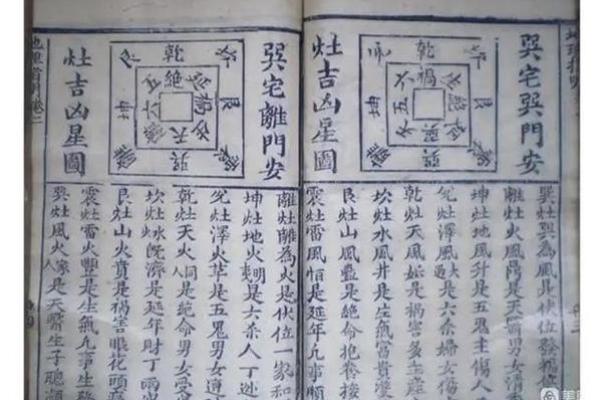 巽宅巽門安
灶吉凶星圖
乾
艮
坤
巽
禍
六
五
天
巽灶巽為風是伏位發福
離灶火風鼎是天男女清
坤灶地風升是五鬼主傷人
兌灶澤風大過是六殺婦女傷
乾灶天風姤是禍害多生
坎灶水風井是生氣富貴雙
艮灶山風蠱是絶命抱養接
震灶雷風恒是延年兄
巽宅離門安
灶吉凶星圖
乾
艮
坤
巽
絶
五
六
禍
天
離灶離為火是伏位一家和
坤灶地火明夷是六杀人丁
兌灶澤火革是五鬼男女遭
乾灶天火同人是絶命男女
坎灶水火既濟是延年財丁兩
艮灶山火賁是禍害眼花頭
震灶雷火豐是生氣凡事生
巽灶風火家人是天醫生子聰